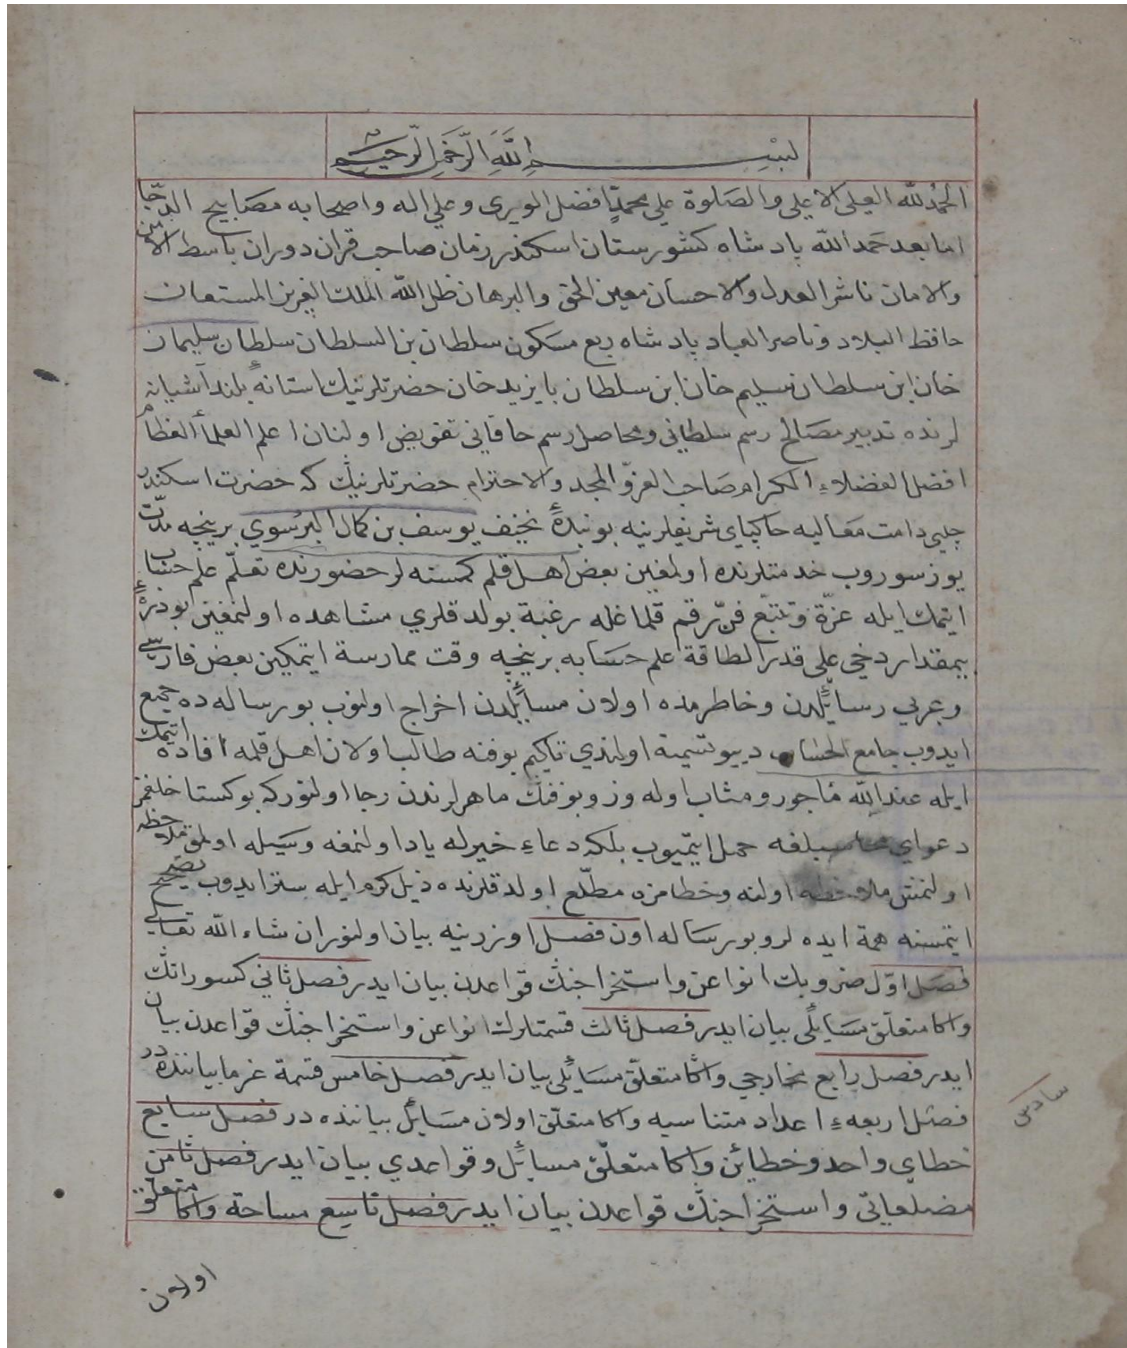 بسم الله الرحمن الرحيم
الحمد لله العلى الاعلى والصلوة على محمد افضل الورى وعلى اله واصحابه مصابيح الدجا
اما بعد حمد الله پادشاه كشورستان اسكندر زمان صاحب قران دوران باسط الامن
والامان ناشر العدل والاحسان معين الحق والبرهان ظل الله الملك العزيز المستعان
حافظ البلاد وناصر العباد پادشاه ربع مسكون سلطان بن السلطان سلطان سليمان
خان ابن سلطان سليم خان ابن سلطان بايزيد خان حضرتلرينك استانهٔ بلند آشيانه
لرنده تدبير مصالح رسم سلطاني ومحاصل رسم خاقاني تفويض اولنان اعلم العلمأ العظام
افضل الفضلاء الكرام صاحب العز والمجد والاحترام حضرتلرينك كه حضرت اسكندر
چلبي دامت معاليه خاكپاى شريفلرينه بو نبدهٔ نحيف يوسف بن كمال البرسوي برنيجه مدت
يوز سوروب خدمتلرنده اولمغين بعض اهل قلم كمسنه لر حضورنده تعلّم علم حساب
ايتمك ايله عزّة وتتبّع فنّ رقم قلماغله رغبة بولدقلري مشاهده اولنمغين بو ذرّهٔ
بيمقدار دخي على قدر الطاقة علم حسابه برنيجه وقت ممارسة ايتمكين بعض فارسي
وعربي رسائلدن وخاطرمده اولان مسائلدن اخراج اولنوب بو رساله ده جمع
ايدوب جامع الحساب ديو تسمية اولندي تاكيم بو فنه طالب اولان اهل قلمه افاده ايتمك
ايله عند الله مأجور ومثاب اوله وز وبو فنك ماهرلرندن رجا اولنوركه بو كستاخلغمز
دعواي بلغه حمل ايتميوب بلكه دعاء خيرله ياد اولنمغه وسيله اولمق ملاحظه
اولنمش ملاحظه اولنه وخطامزه مطّلع اولدقلرنده ذيل كرم ايله ستر ايدوب تصحيح
ايتمسنه همة ايده لر وبو رساله اون فصل اوزرينه بيان اولنور ان شاء الله تعالى
فصل اوّل ضروبك انواعن واستخراجنك قواعدن بيان ايدر فصل ثاني كسوراتك
واكا متعلّق مسائلى بيان ايدر فصل ثالث قسمتلرك انواعن واستخراجنك قواعدن بيان
ايدر فصل رابع مخارجي واكا متعلّق مسائلى بيان ايدر فصل خامس قسمة غرما بياننده در
فصل اربعهء اعداد متناسبه واكا متعلّق اولان مسائل بياننده در فصل سابع
خطاي واحد وخطائين واكا متعلّق مسائل وقواعدي بيان ايدر فصل ثامن
مضلعاتى واستخراجنك قواعدن بيان ايدر فصل تاسع مساحة واكا متعلق
سادس
اولان